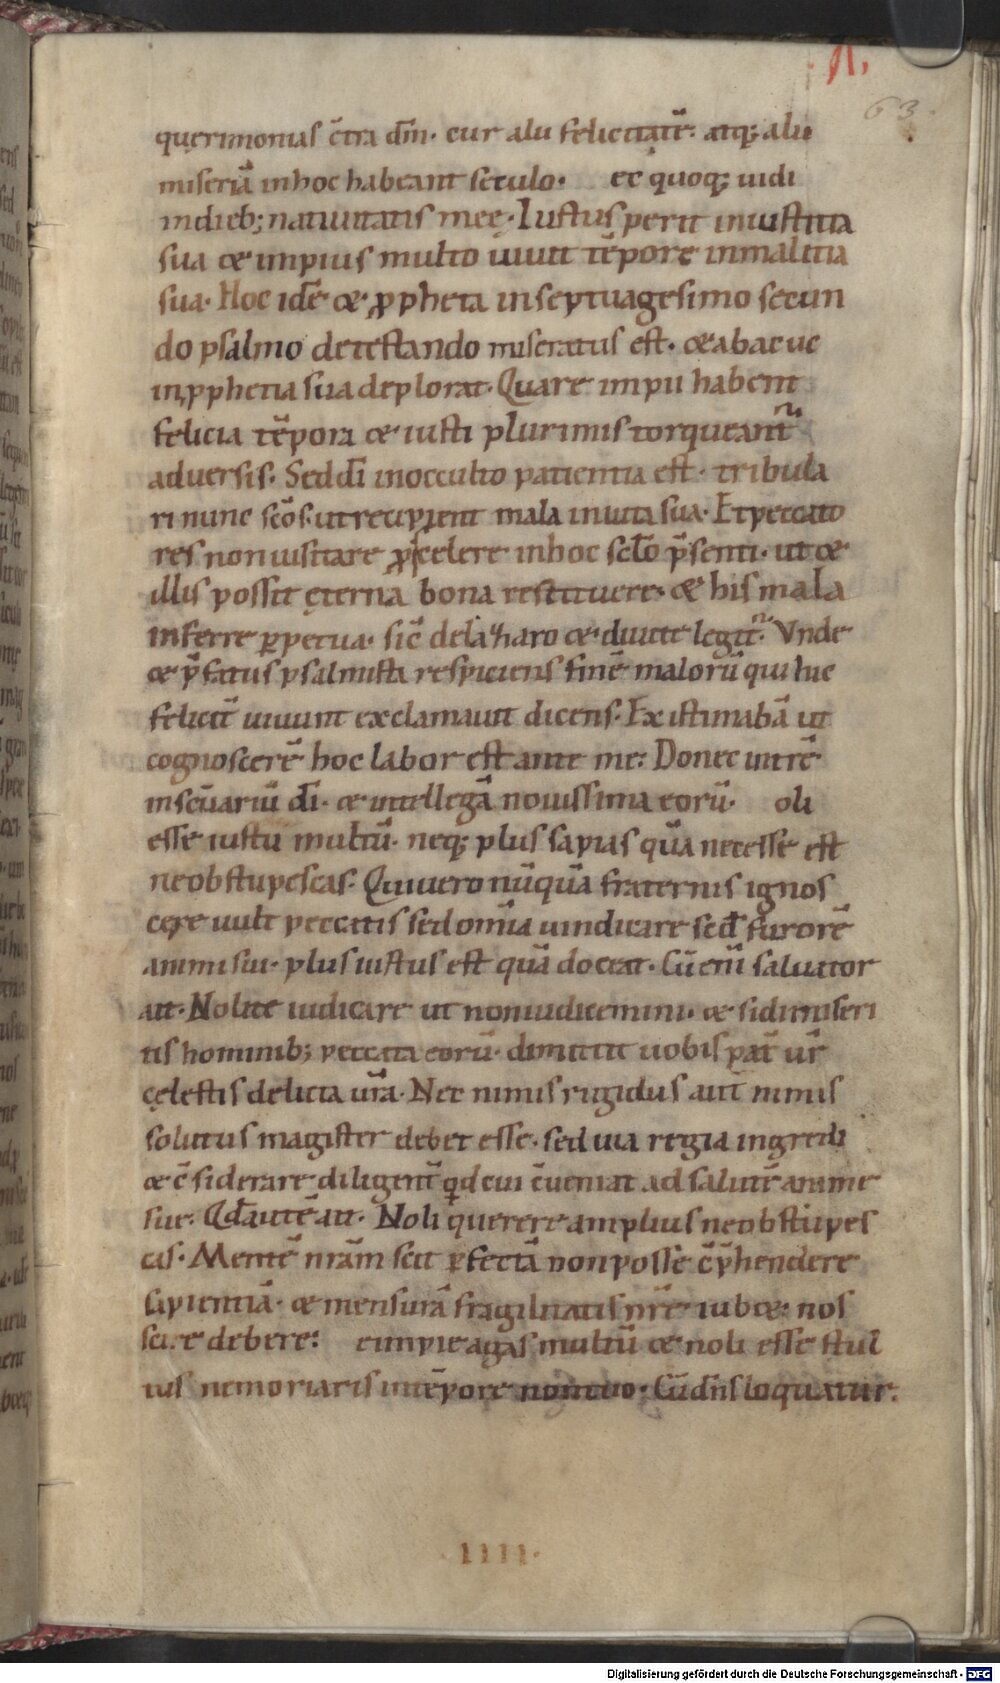 .N.
63.
querimonias c̄tra dm̄. cur alii felicitatē. atq; alii
miseriā inhoc habeant seculo. ec quoq; uidi
indieb; natiuitatis meę. Iustus perit iniustitia
sua & impius multo uiuit tēpore inmalitia
sua. Hoc idē & ꝓpheta inseptuagesimo secun
do psalmo detestando miseratus est. & abacuc
inꝓphetia sua deplorat. Quare impii habent
felicia tēpora & iusti plurimis torqueant᷑
aduersis. Sed dī inocculto patientia est. tribula
ri nunc scōs. ut recipient mala inuita sua. Et peccato
res non uisitare ꝓ scelere inhoc sc̄lo p̄senti. ut &
illis possit ęterna bona restituere. & his mala
inferre ꝑpetua. sic̄ delazaro & diuite legit᷑. Vnde
& p̄fatus psalmista respiciens finē malorū qui hic
felicit̄ uiuunt exclamauit dicens. Existimabā ut
cognoscerē hoc labor est ante me. Donec intrē
insc̄uariū dī. & intellegā nouissima eorū. oli
esse iustū multū. neq; plus sapias quā necesse est
ne obstupescas. Qui uero nūquā fraternis ignos
cere uult peccatis sed omīa uindicare sed̄ furorē
animi sui. plus iustus est quā doceat. Cū enī saluator
ait. Nolite iudicare ut non iudicemini. & si dimiseri
tis hominib; peccata eorū. dimittit uobis pat̄ ur̄
cęlestis delicta urā. Nec nimis rigidus aut nimis
solutus magister debet esse. sed uia regia ingredi
& c̄siderare diligent̄ qd cui c̄ueniat ad salutē anime
sue. Qd̄ autē ait. Noli querere amplius ne obstupes
cas. Mentē nrām scit ꝑfectā non posse c̄p̄hendere
sapientiā. & mensurā fragilitatis nr̄e iub& nos
scire debere. e impie agas multū & noli esse stul
tus ne moriaris intēpore non tuo. Cū dn̄s loquatur.
.IIII.
Digitalisierung gefördert durch die Deutsche Forschungsgemeinschaft - DFG